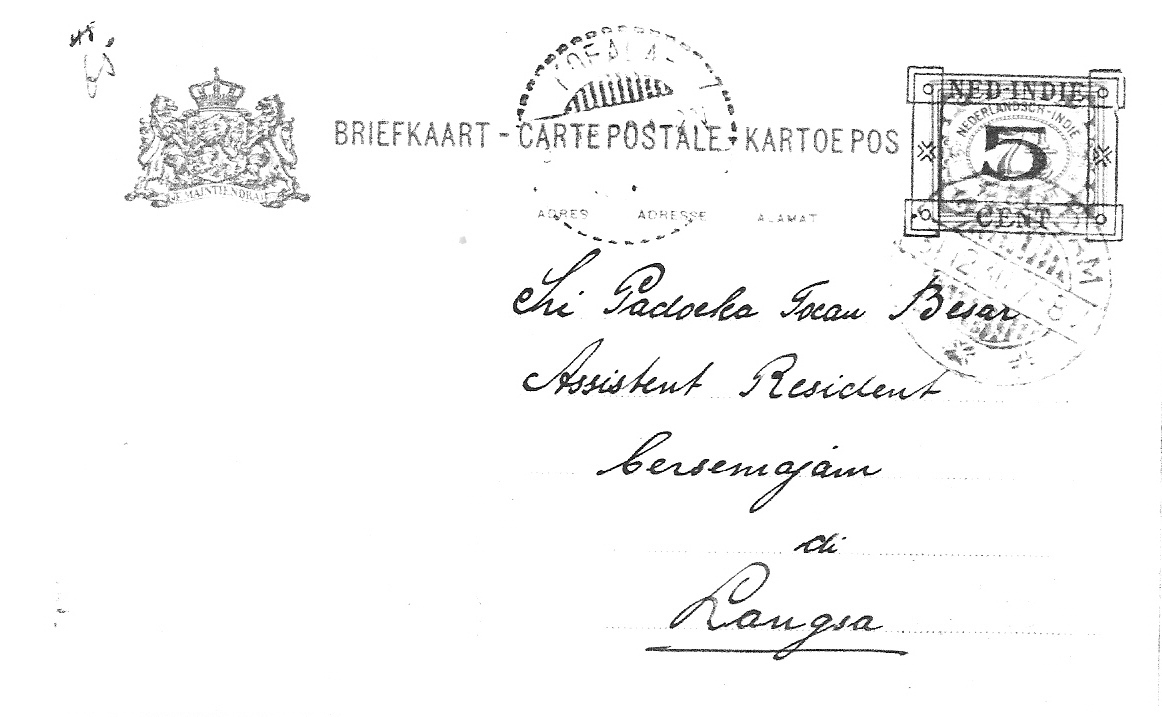 NED-INDIE
NEDERLANDSCH-INDIE
5
CENT
BRIEFKAART - CARTE POSTALE - KARTOE POS
JE MAINTIENDRAI
ADRES ADRESSE ALAMAT
Sri Padoeka Toean Besar
Assistent Resident
bersemajam
di
Langsa